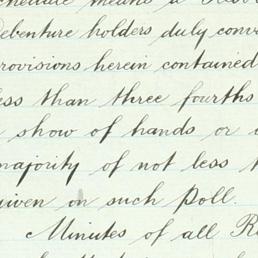 means a
Debenture holders duly conv
rovisions herein contained
ess than three fourths
show of hands or
majority of not less
given on such Poll.
Minutes of all R